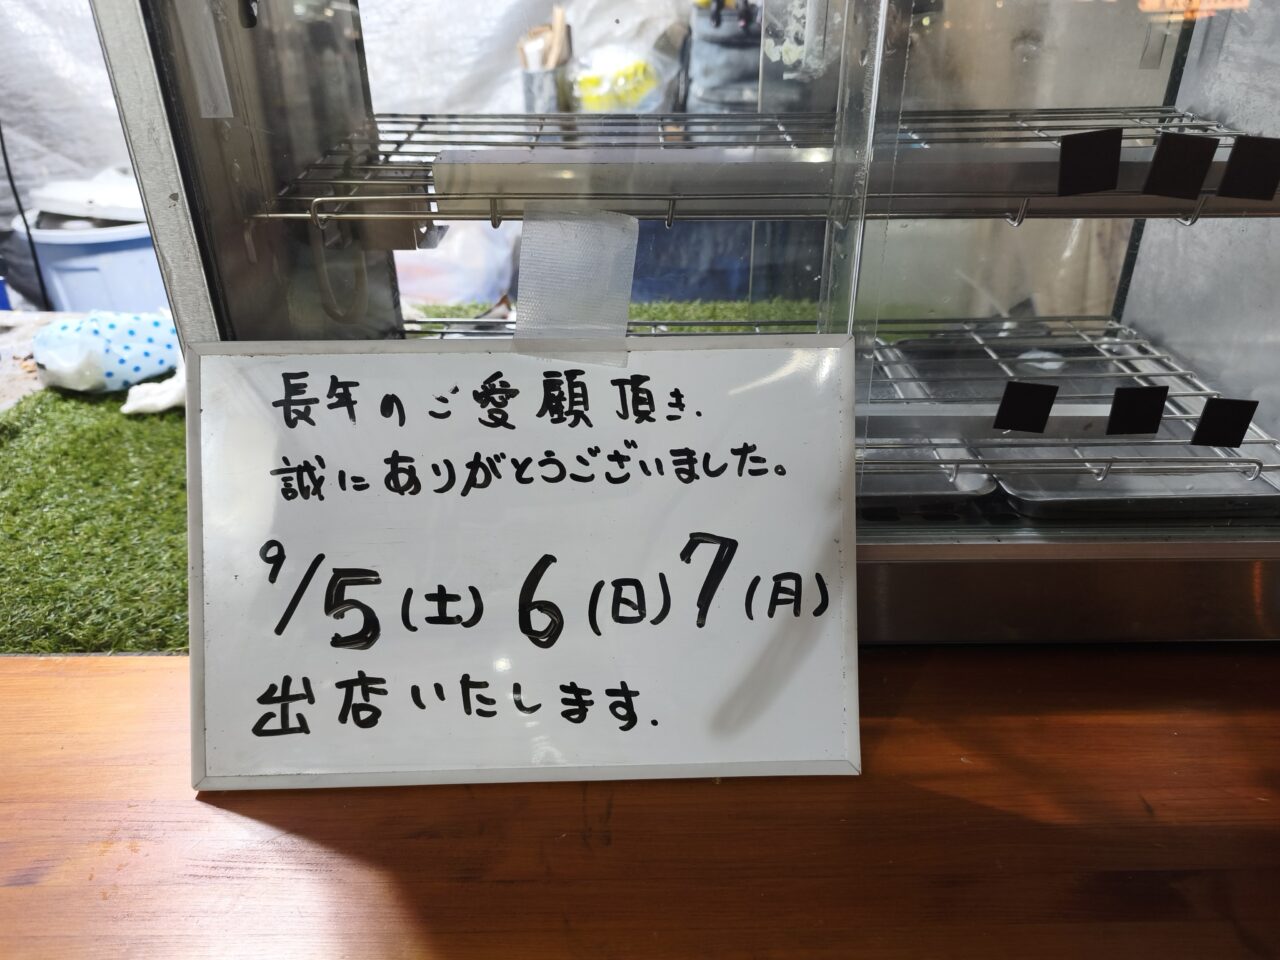 長年のご愛顧頂き.
誠にありがとうございました。
9/5(土) 6(日) 7(月)
出店いたします.